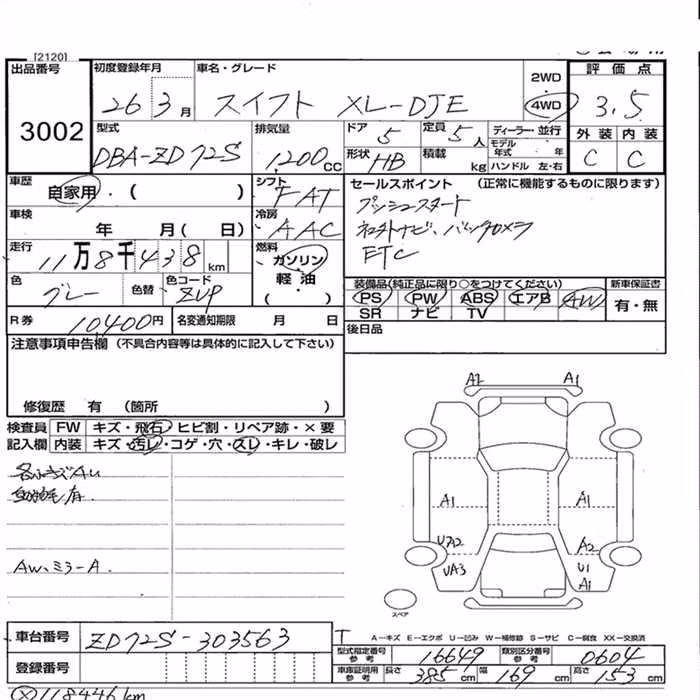 [2120]
出品番号 初度登録年月 車名・グレード 2WD 評価点
3002 26 3月 スイフト XL-DJE 4WD 3.5
型式 排気量 ドア 5 定員 5人 ディーラー・並行 外装 内装
DBA-ZD72S 1,200cc 形状 HB 積載 kg モデル年式 年 C C
ハンドル 左・右
車歴 自家用・( ) シフト FAT セールスポイント (正常に機能するものに限ります)
車検 年 月(日) 冷房 AAC プッシュスタート
走行 11万8千438km 燃料 ガソリン 軽油 ( )
ETC
色 グレー 色替 色コード ZVP
装備品(純正品に限り○をつけてください) 新車保証書
PS PW ABS エアB AW 有・無
SR ナビ TV
R券 10400円 名変通知期限 月 日 後日品
注意事項申告欄 (不具合内容等は具体的に記入して下さい)
修復歴 有 (箇所 )
検査員 FW キズ・飛石・ヒビ割・リペア跡・×要
記入欄 内装 キズ・汚レ・コゲ・穴・スレ・キレ・破レ
AW、ミラーA
A2 A1
A1 A1
UA2 A2
UA3 U1
A1
スペア
A—キズ E—エクボ U—凹み W—補修跡 S—サビ C—腐食 XX—交換済
車台番号 ZD72S-303563 T
型式指定番号 参考 16649 類別区分番号 参考 0604
登録番号 車庫証明用 参考 長さ 385cm 幅 169cm 高さ 153cm
118446km